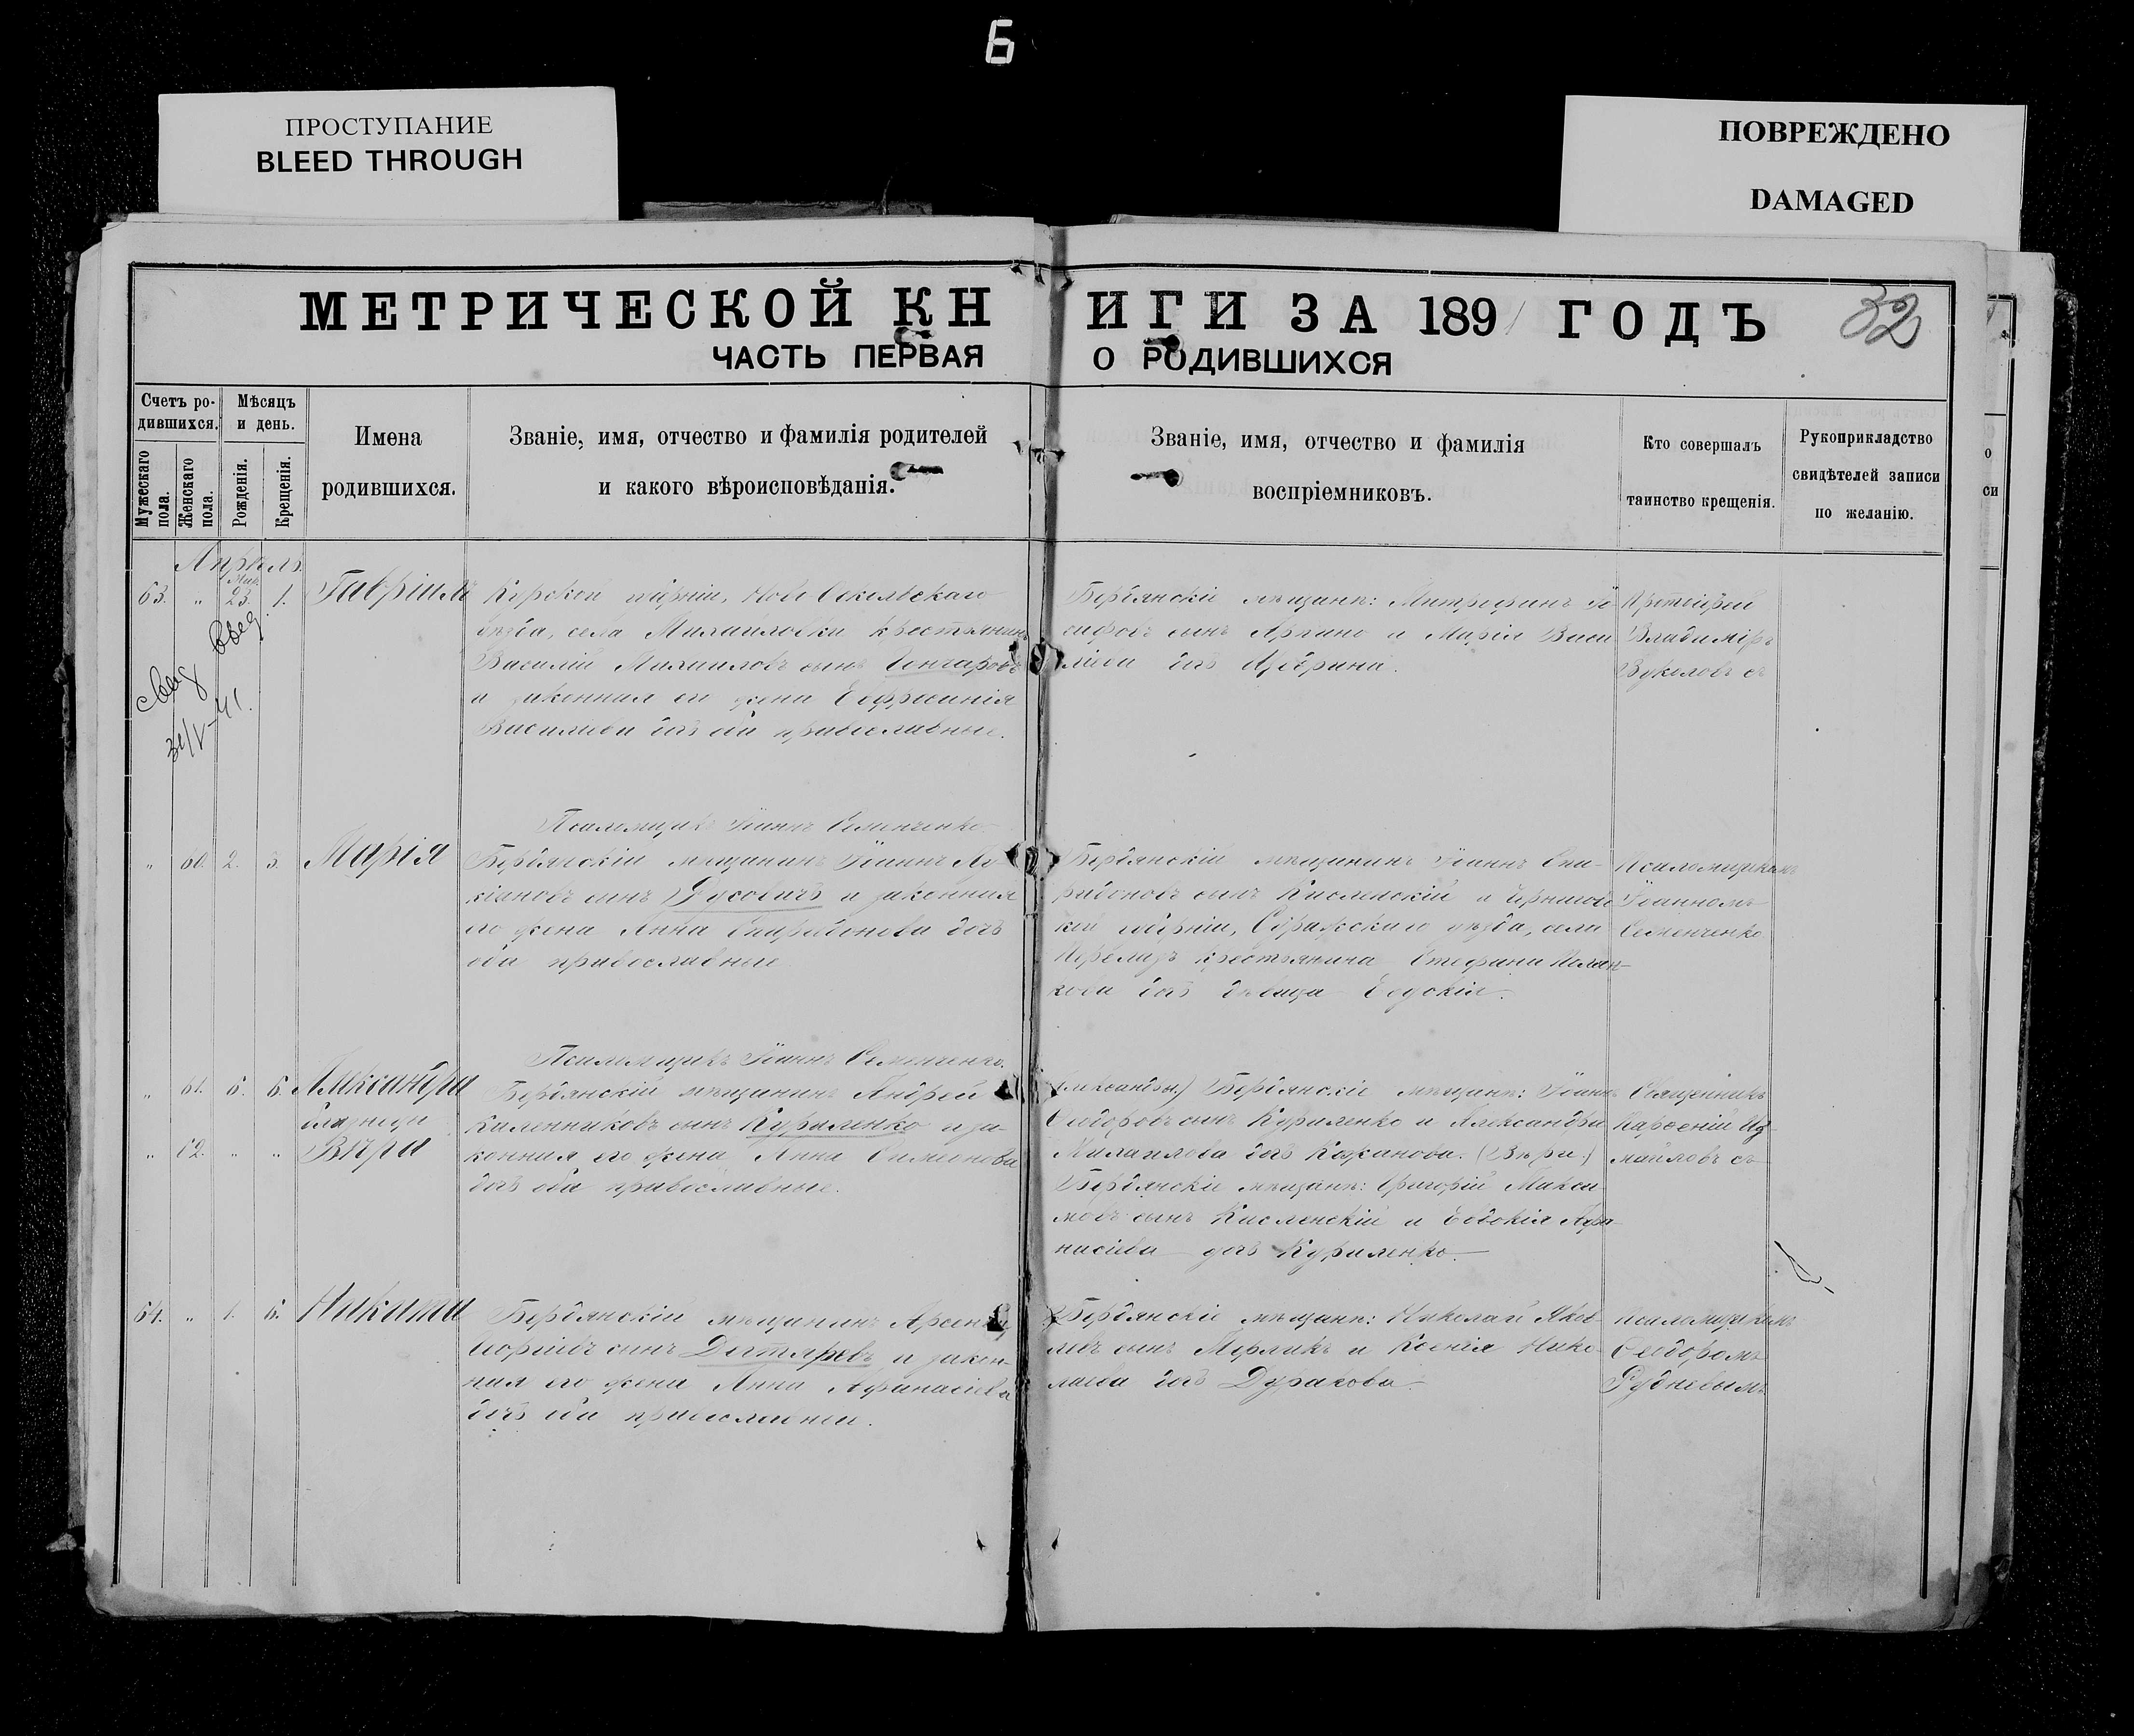 Б
ПРОСТУПАНИЕ
BLEED THROUGH
ПОВРЕЖДЕНО
DAMAGED
МЕТРИЧЕСКОЙ КНИГИ ЗА 1891 ГОДЪ
32
ЧАСТЬ ПЕРВАЯ О РОДИВШИХСЯ
Счетъ ро-
дившихся.
Мужескаго пола.
Женскаго пола.
Мѣсяцъ
и день.
Рожденія.
Крещенія.
Имена
родившихся.
Званіе, имя, отчество и фамилія родителей
и какого вѣроисповѣданія.
Званіе, имя, отчество и фамилія
воспріемниковъ.
Кто совершалъ
таинство крещенія.
Рукоприкладство
свидѣтелей записи
по желанію.
Апрѣль
63. " 23. 1. Гавріилъ
Курской губерніи, Ново Оскольскаго
уѣзда, села Михаиловки крестьянинъ
Василій Михаиловъ сынъ
и законная его жена Евфросинія
Васильева дочь оба православные.
Бердянскіе мѣщане: Митрофанъ Іо-
сифовъ сынъ и Марія Васи-
ліева дочь
Протоіерей
Владиміръ
Жуковъ съ
Псаломщикъ Іоаннъ Семенченко
" 60. 2. 3. Марія
Бердянскій мѣщанинъ Іоаннъ Лу-
кіановъ сынъ и законная
его жена Анна Спиридонова дочь
оба православные
Бердянскій мѣщанинъ Іоаннъ Спи-
ридоновъ сынъ Кисленскій и Чернигов-
кой губерніи, Суражскаго уѣзда, села
крестьянина Стефана
дочь дѣвица Евдокія.
Псаломщикомъ
Іоанномъ
Семенченко
Псаломщикъ Іоаннъ Семенченко.
" 61. 6. 6. Александра
близнецы
" 62. " " Вѣра
Бердянскій мѣщанинъ Андрей
Калинниковъ сынъ Куриленко и за-
конная его жена Анна Симеонова
дочь оба православные.
(Александры.) Бердянскіе мѣщане: Іоаннъ
Ѳеодоровъ сынъ Куриленко и Александра
Михаилова дочь Кожанова. (Вѣры.)
Бердянскіе мѣщане: Григорій Макси-
мовъ сынъ Кисленскій и Евдокія Афа-
насіева дочь Куриленко.
Священникъ
Парѳеній Из-
маиловъ съ
64. " 1. 6. Никита
Бердянскій мѣщанинъ Арсеній
Георгіевъ сынъ Дегтяревъ и закон-
ная его жена Анна Афанасіева
дочь оба православные.
Бердянскіе мѣщане: Николай Яков-
левъ сынъ Мерликъ и Ксенія Нико-
лаева дочь Дуракова.
Псаломщикомъ
Ѳеодоромъ
Рудневымъ